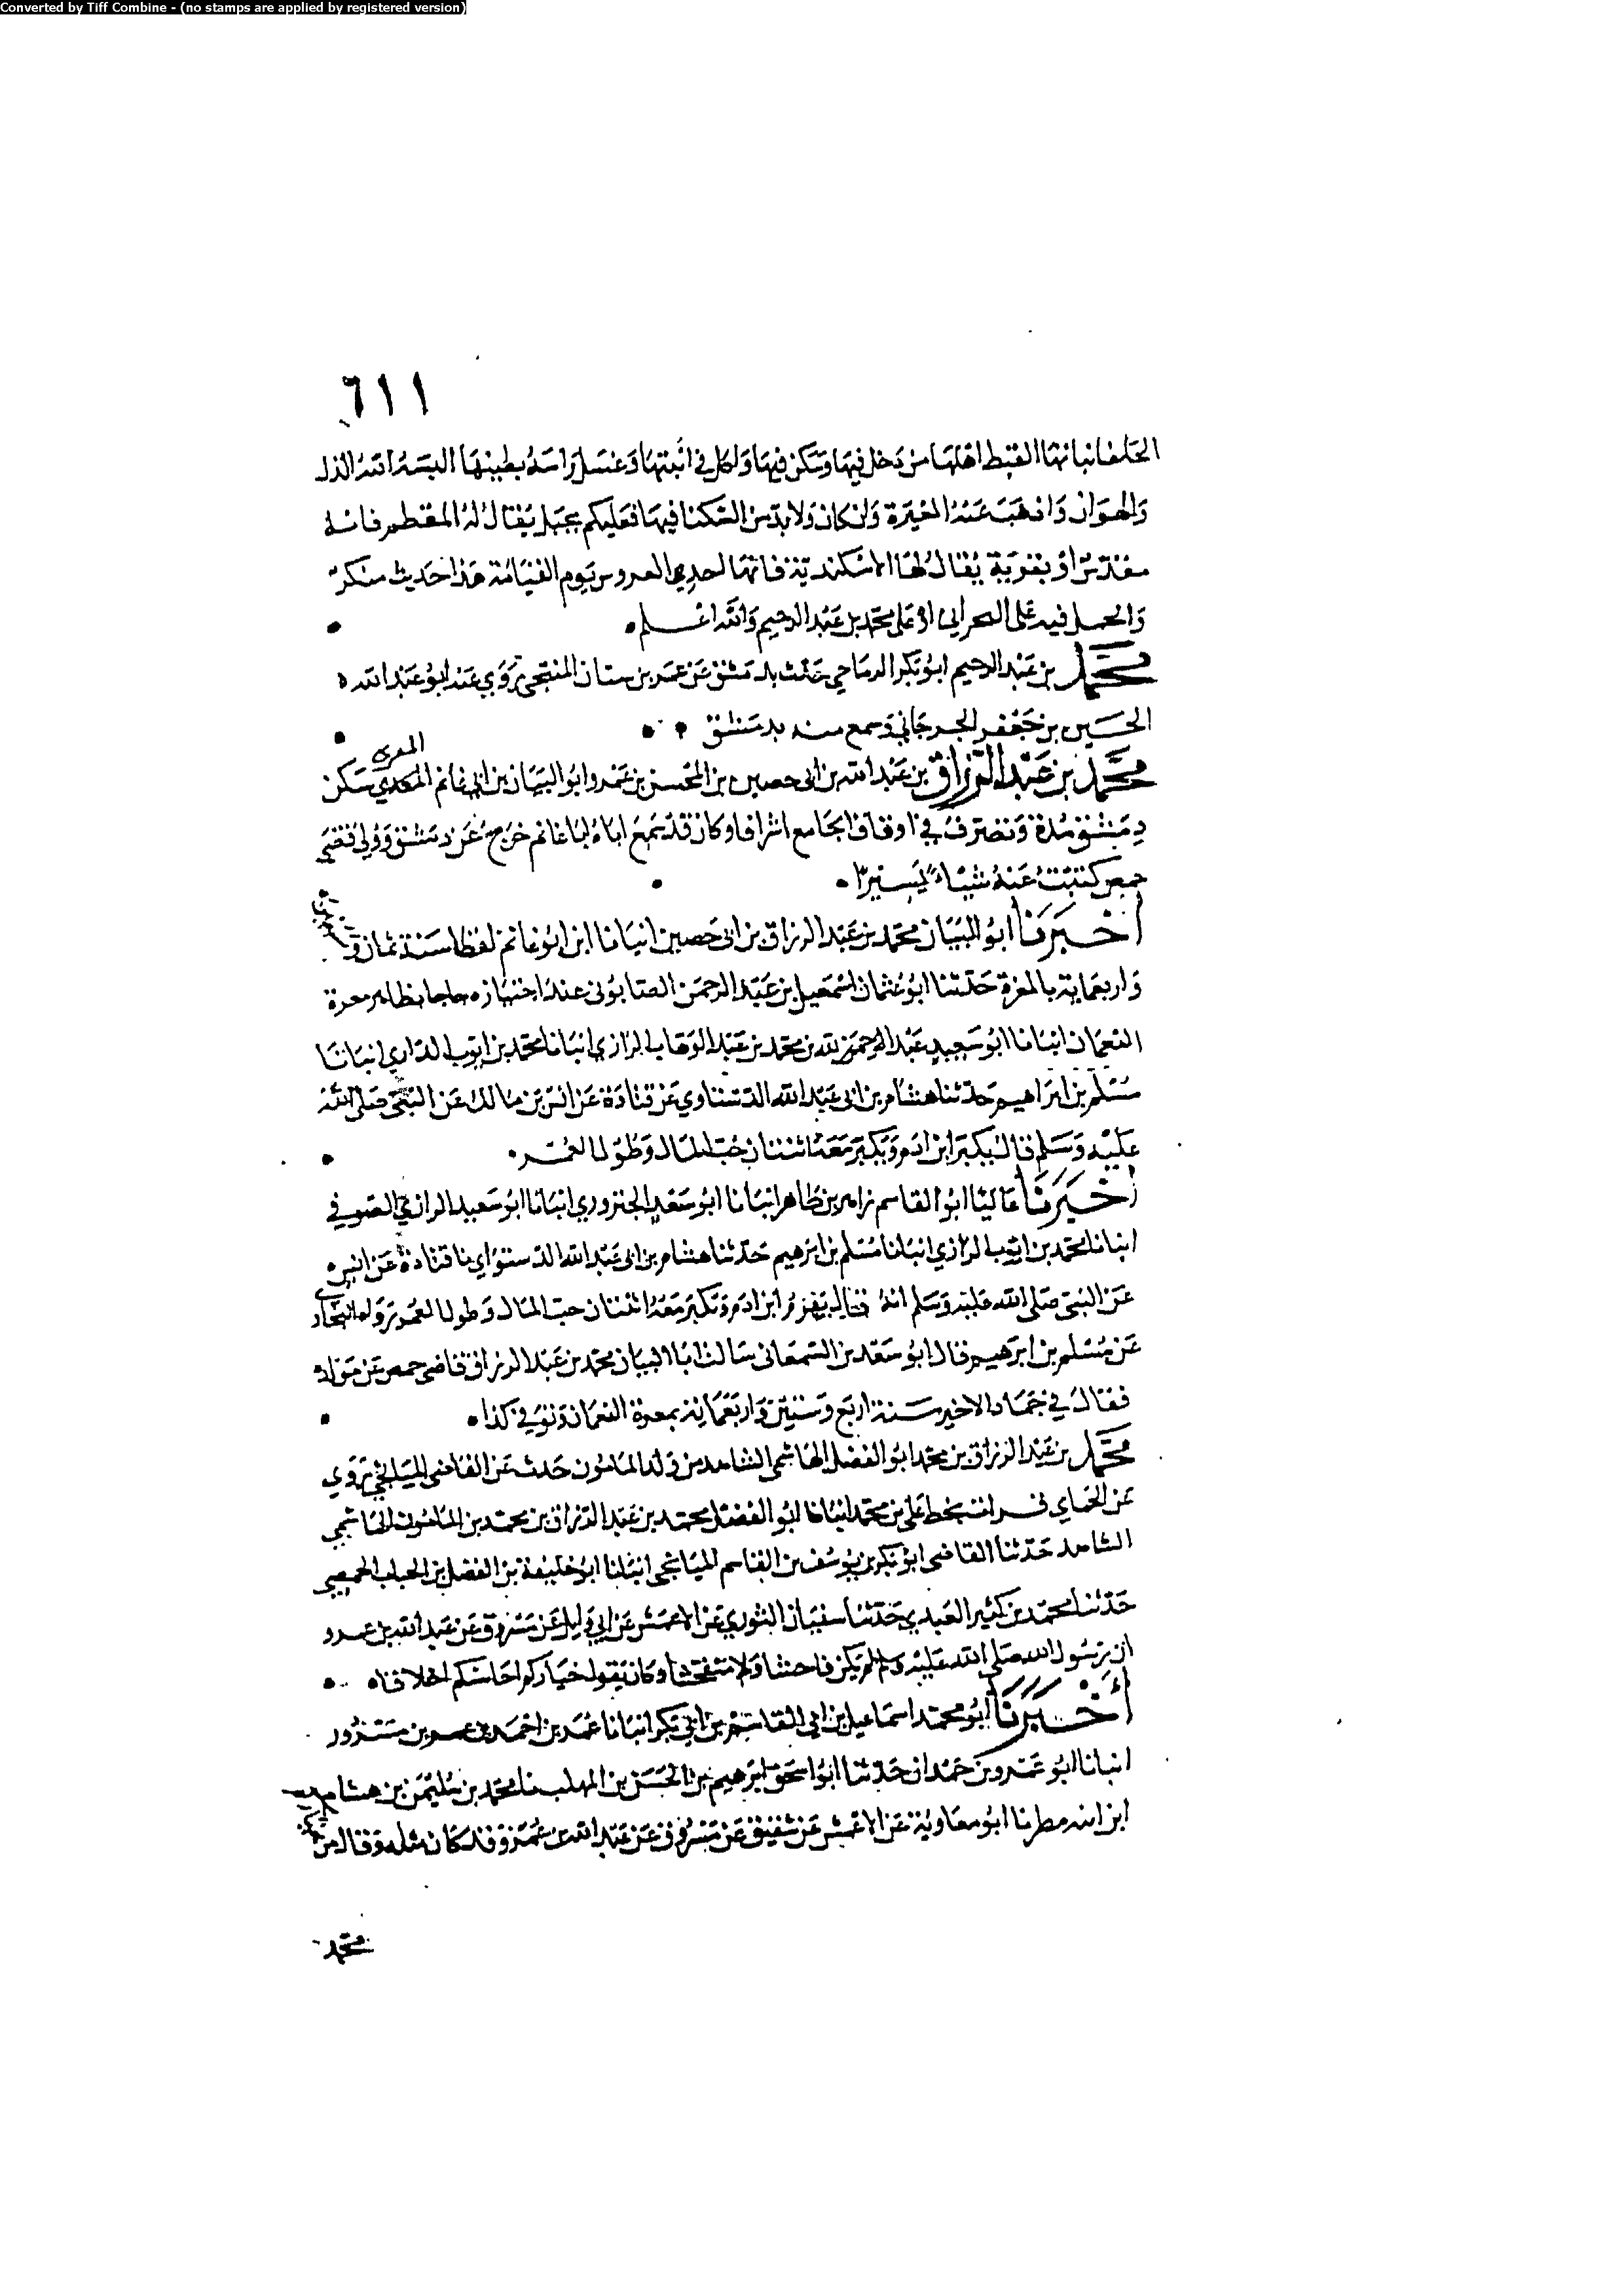 Converted by Tiff Combine - (no stamps are applied by registered version)
٦١١
الخلفا نباتها القبط اهلها من دخل فيها وسكن فيها واكل في انيتها وغسل راسه بطينها البسه الله الذل
والهوان واذهب عنه الغيرة وان كان ولا بد من السكنا فيها فعليكم بجبل يقال له المقطم فانه
مقدس او بقرية يقال لها الاسكندرية فانها احدى العروس يوم القيامة هذا حديث منكر
والحمل فيه على البحراني او على محمد بن عبد الرحيم والله اعلم
محمد بن عبد الرحيم ابو بكر الرماحي حدث بدمشق عن عمر بن سنان المنبجي روي عنه ابو عبد الله
الحسين بن جعفر الجرجاني وسمع منه بدمشق
المعري
محمد بن عبد الرزاق بن عبد الله بن ابي حصين بن المحسن بن عمرو ابو البيان بن ابي غانم سكن
دمشق مدة وتصرف في اوقاف الجامع اشرافا وكان قد سمع اباه ابا غانم خرج عن دمشق وولي قضى
حمص كتبت عنه شياء يسيرا
اخبرنا ابو البيان محمد بن عبد الرزاق بن ابي حصين انبانا ابن ابو غانم لفظا سنة ثمان
واربعمايه بالمعرة حدثنا ابو عثمان اسمعيل بن عبد الرحمن الصابوني عند اجتيازه حاجا بظاهر معرة
النعمان انبانا ابو سعيد عبد الله بن محمد بن عبد الوهاب الرازي انبانا محمد بن ايوب الرازي انبانا
مسلم بن ابراهيم حدثنا هشام بن ابي عبد الله الدستناوي عن قتادة عن انس بن مالك عن النبي صلى الله
عليه وسلم قال يكبر ابن ادم ويكبر معه اثنتان حب المال وطول العمر
اخبرنا عاليا ابو القاسم زاهر بن طاهر انبانا ابو سعد الجنزوري انبانا ابو سعيد الرازي الصوفي
انبانا محمد بن ايوب الرازي انبانا مسلم بن ابرهيم حدثنا هشام بن ابي عبد الله الدستواي نا قتادة عن انس
عن النبي صلى الله عليه وسلم انه قال يهرم ابن ادم ويكبر معه اثنتان حب المال وطول العمر رواه البخاري
عن مسلم بن ابرهيم قال ابو سعد بن السمعاني سالت ابا البيان محمد بن عبد الرزاق قاضي حمص عن مولده
فقال في جماد الاخير سنة اربع وستين واربعمايه بمعرة النعمان وتوفي في كذا
محمد بن عبد الرزاق بن محمد ابو الفضل الهاشمي الشاهد من ولد المامون حدث عن القاضي الميانجي روي
عن الحناي قرات بخط علي بن محمد انبانا ابو الفضل محمد بن عبد الرزاق بن محمد بن المامون الهاشمي
الشاهد حدثنا القاضي ابو بكر بن يوسف بن القاسم الميانجي انبانا ابو خليفة بن الفضل بن الحباب الجمحي
حدثنا محمد بن كثير العبدي حدثنا سفيان الثوري عن الاعمش عن ابي وايل عن مسروق عن عبد الله بن عمرو
ان رسول الله صلى الله عليه وسلم لم يكن فاحشا ولا متفحشا وكان يقول خياركم احاسنكم اخلاقا
اخبرنا ابو محمد اسماعيل بن ابي القاسم بن ابي بكر انبانا عمر بن احمد بن عمر بن مسرور
انبانا ابو عمرو بن حمدان حدثنا ابو اسحق ابرهيم بن الحسن بن المهلب نا محمد بن سليمن بن هشام
ابن ابنه مطر نا ابو معاوية عن الاعمش عن شقيق عن مسروق عن عبد الله بن عمرو فذكان مثله وقال من
محمد